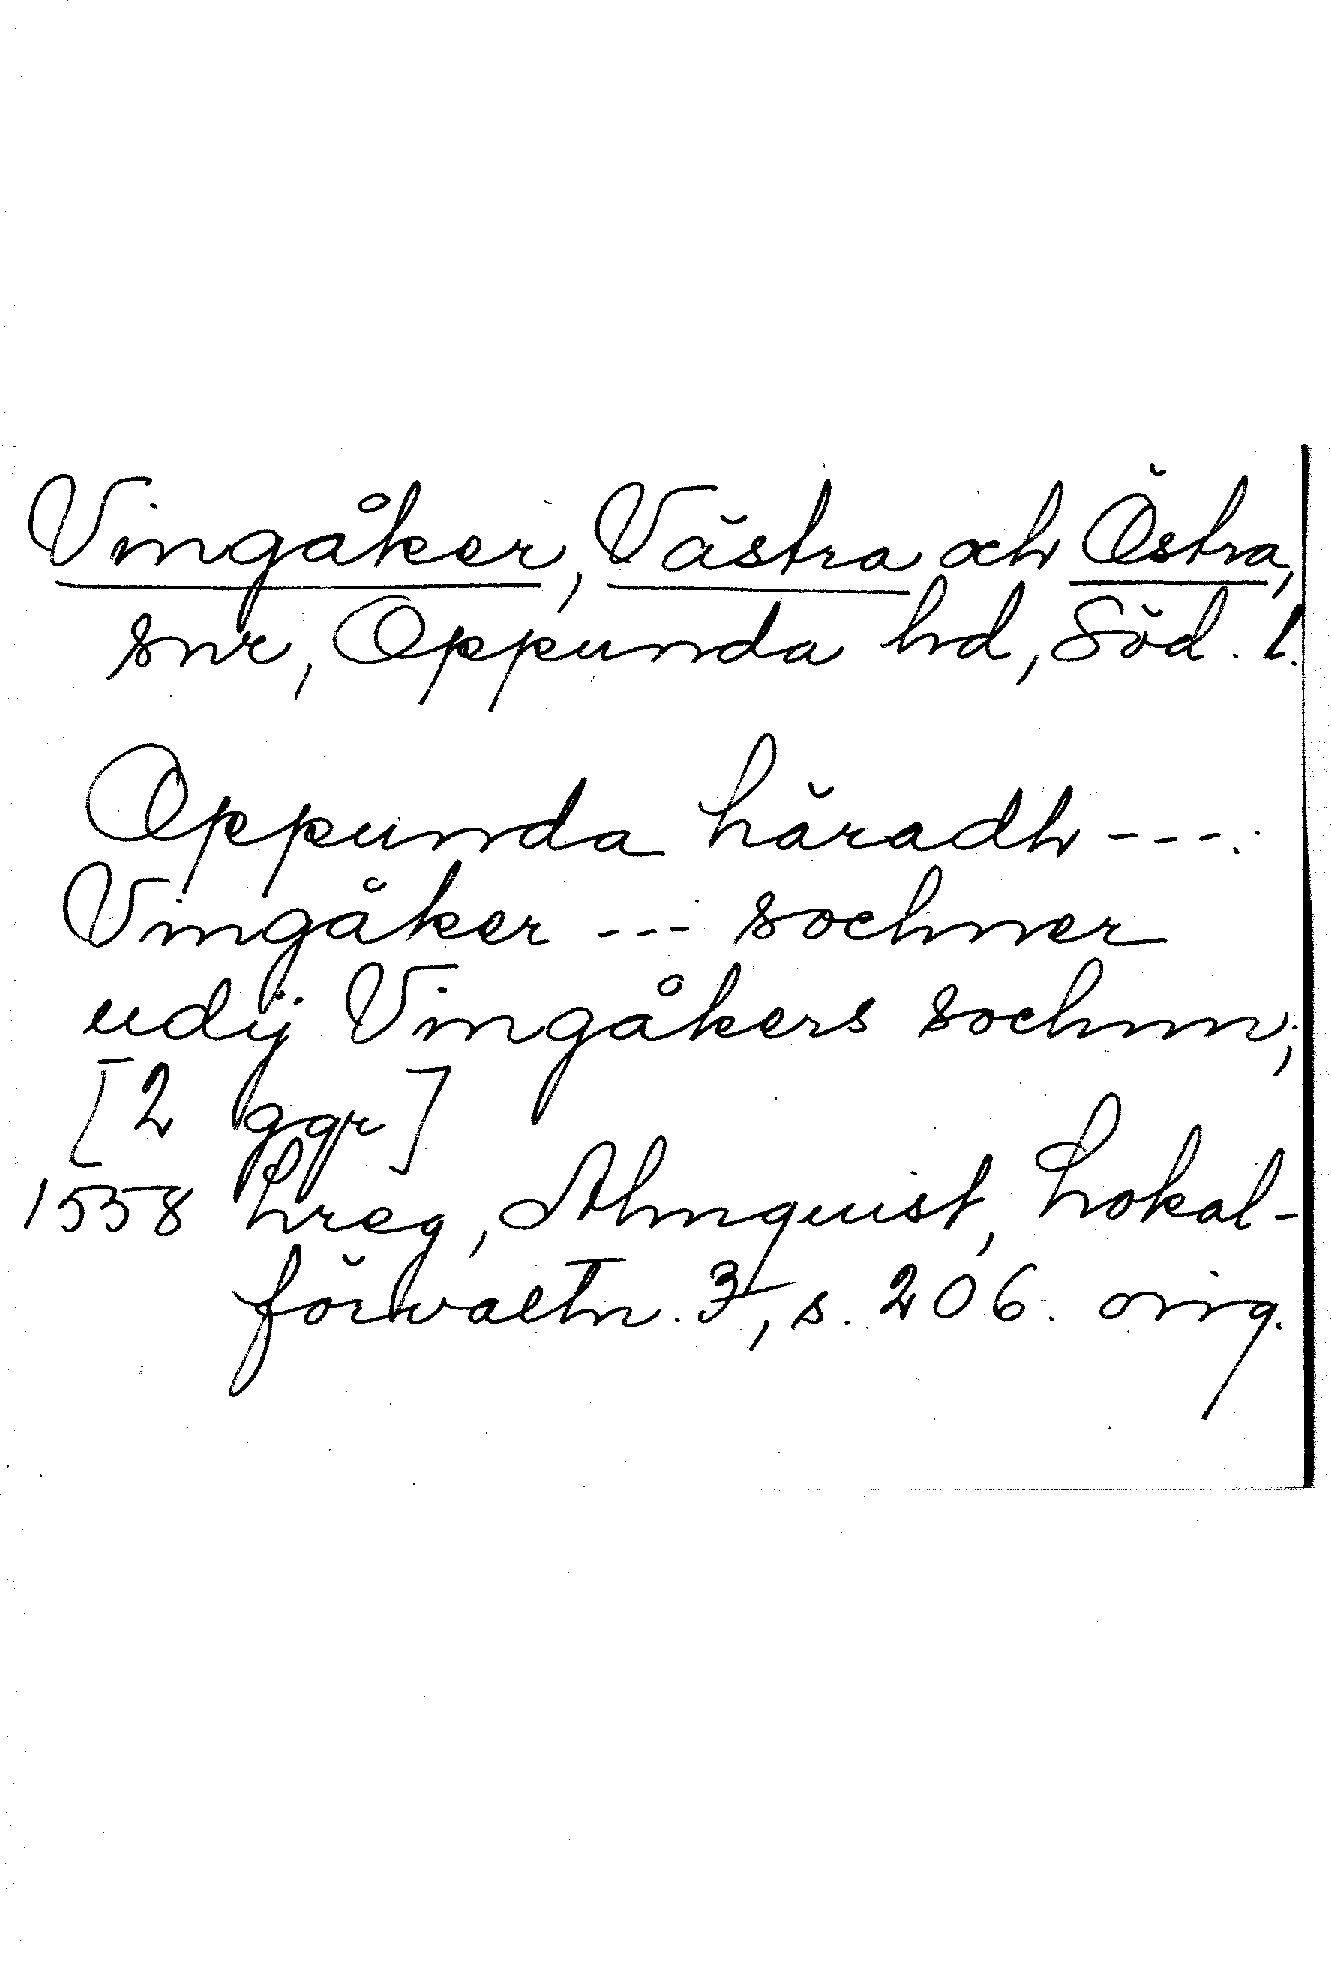 Vingåker, Västra och Östra,
snr, Oppunda hd, Söd. l.
Oppunda häradh ---.
Vingåker --- sochner
udij Vingåkers sochnn;
[2 ggr]
1558 Lreg, Almquist, Lokal-
förvaltn. 3, s. 206. orig.